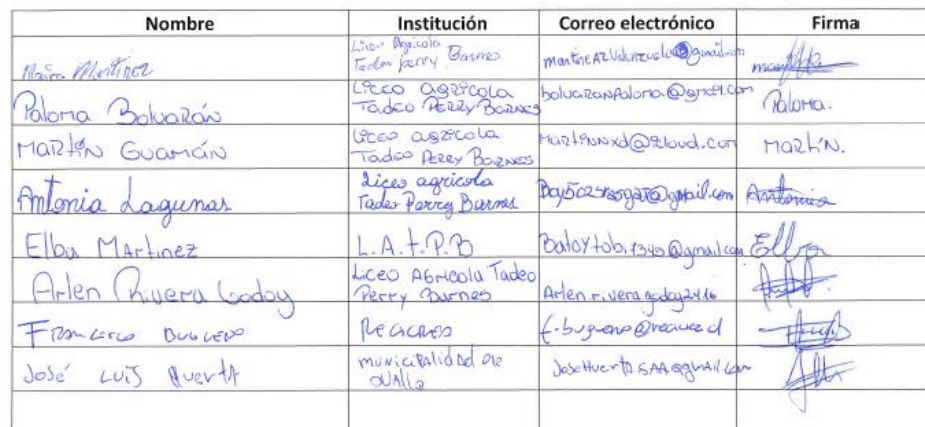 Nombre Institución Correo electrónico Firma
Martinez Liceo Agricola
Tadeo Perry Barnes
Paloma Bolvarán Liceo agrícola
Tadeo Perry Barnes bolvaranpaloma.@gmail.com Paloma.
Martín Guamán Liceo agrícola
Tadeo Perry Barnes Martinnxd@icloud.com Martín.
Antonia Lagunas Liceo agricola
Tadeo Perry Barnes Antonia
Elba Martinez L.A.T.P.B Batoytobi1349@gmail.com Elba
Arlen Rivera Godoy Liceo Agricola Tadeo
Perry Barnes Arlen.riveragodoy2416
Francisco
José Luis Huerta Municipalidad de
Ovalle